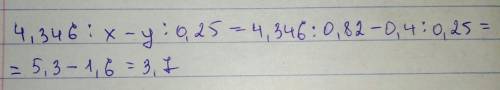 4,346 : x - y : 0,25 = 4,346 : 0,82 - 0,4 : 0,25 =
= 5,3 - 1,6 = 3,7